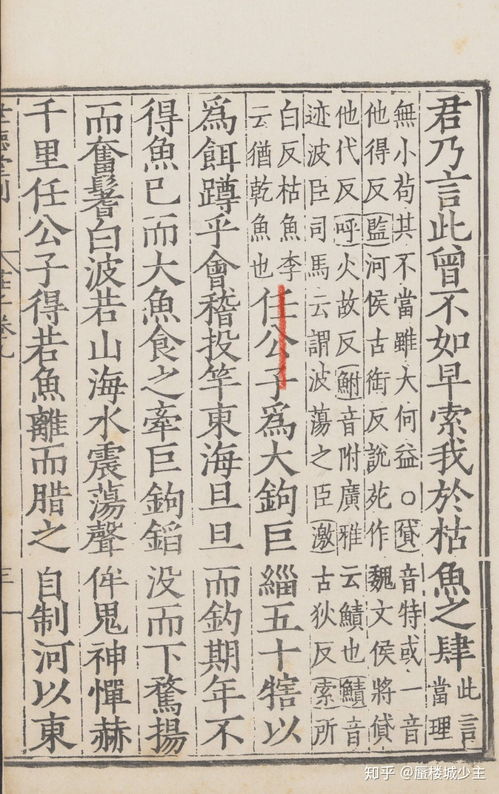 君乃言此曾不如早索我於枯魚之肆此言當理
無小苟其不當雖大何益○貸音特或一音
他得反監河侯古銜反說苑作魏文侯將貸
他代反呼火故反鮒音附廣雅云鰿也鰿音
迹波臣司馬云謂波蕩之臣激古狄反索所
白反枯魚李云猶乾魚也任公子爲大鉤巨緇五十犗以
爲餌蹲乎會稽投竿東海旦旦而釣期年不
得魚已而大魚食之牽巨鉤錎沒而下騖揚
而奮鬐白波若山海水震蕩聲侔鬼神憚赫
千里任公子得若魚離而腊之自制河以東
知乎 @蜃楼城少主